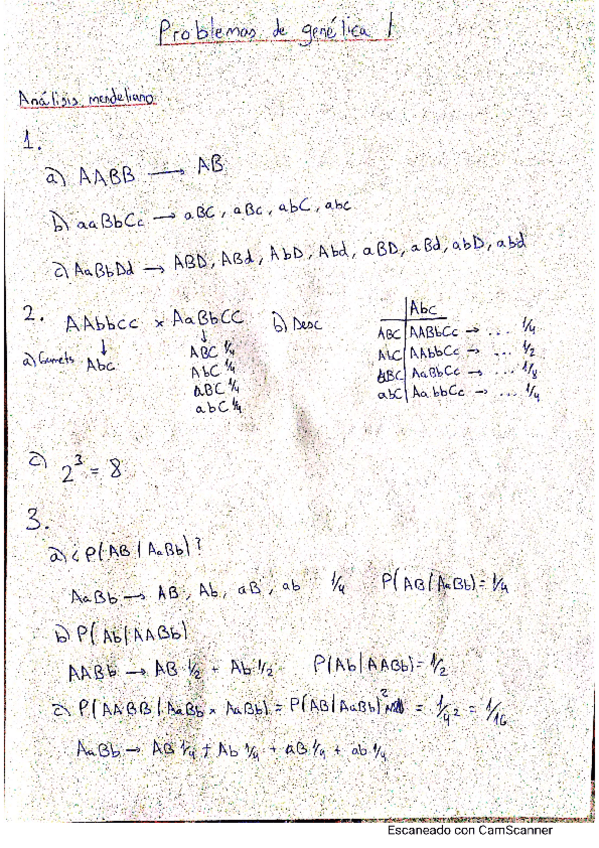 Problemas de genética 1
Análisis mendeliano
1.
a) AABB → AB
b) aaBbCc → aBC, aBc, abC, abc
c) AaBbDd → ABD, ABd, AbD, Abd, aBD, aBd, abD, abd
2. AAbbcc × AaBbCC b) Desc
Abc
a) Gamets Abc
ABC 1/4
AbC 1/4
aBC 1/4
abC 1/4
ABC AABbCc → ... 1/4
AbC AAbbCc → ... 1/2
aBC AaBbCc → ... 1/8
abC AabbCc → ... 1/4
c) 2³ = 8
3.
a) ¿P(AB/AaBb)?
AaBb → AB, Ab, aB, ab 1/4 P(AB/AaBb) = 1/4
b) P(Ab/AABb)
AABb → AB 1/2 + Ab 1/2 P(Ab/AABb) = 1/2
c) P(AABB/AaBb × AaBb) = P(AB/AaBb)² = 1/4² = 1/16
AaBb → AB 1/4 + Ab 1/4 + aB 1/4 + ab 1/4
Escaneado con CamScanner